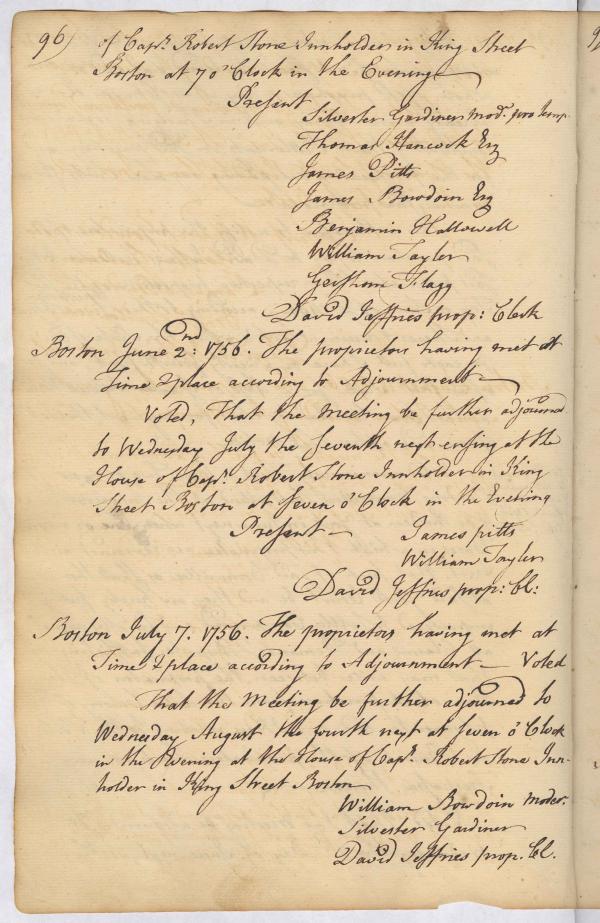 96)
of Capt. Robert Stone Innholder in King Street
Boston at 7 o'Clock in the Evening
Present
Silvester Gardiner Modr. pro temp.
Thomas Hancock Esq
James Pitts
James Bowdoin Esq
Benjamin Hallowell
William Tayler
Gershom Flagg
David Jeffries prop: Clerk
Boston June 2nd: 1756. The proprietors having met at
Time & place according to Adjournment
Voted, That the meeting be further adjourned
to Wednesday July the seventh next ensuing at the
House of Capt. Robert Stone Innholder in King
Street Boston at seven o'Clock in the Evening
Present
James pitts
William Tayler
David Jeffries prop: Cl:
Boston July 7. 1756. The proprietors having met at
Time & place according to Adjournment Voted
That the Meeting be further adjourned to
Wednesday August the fourth next at seven o'Clock
in the Evening at the House of Capt. Robert Stone Inn-
holder in King Street Boston
William Bowdoin Moder.
Silvester Gardiner
David Jeffries prop. Cl.